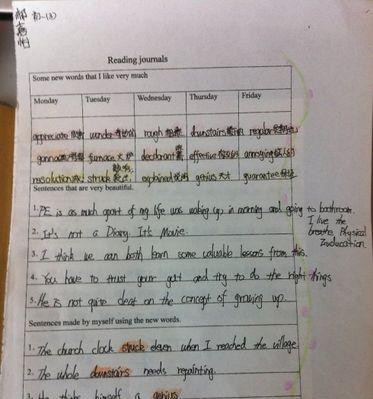 初一(3)
Reading journals
Some new words that I like very much
Monday Tuesday Wednesday Thursday Friday
appreciate rough downstairs regular
gonna furnace deodorant effective annoying
resolution struck explained genius 天才 guarantee
Sentences that are very beautiful.
1. PE is as much apart of my life was waking up in morning and going to bathroom.
I live the
breathe Physical
2. It's not a Diary. It's Movie.
3. I think we can both born some valuable lessons from this.
4. You have to trust your gut and try to do the right things
5. He is not quite clear on the concept of growing up.
Sentences made by myself using the new words.
1. The church clock stuck eleven when I reached the village
2. The whole downstairs needs repainting.
3. He thinks himself a genius